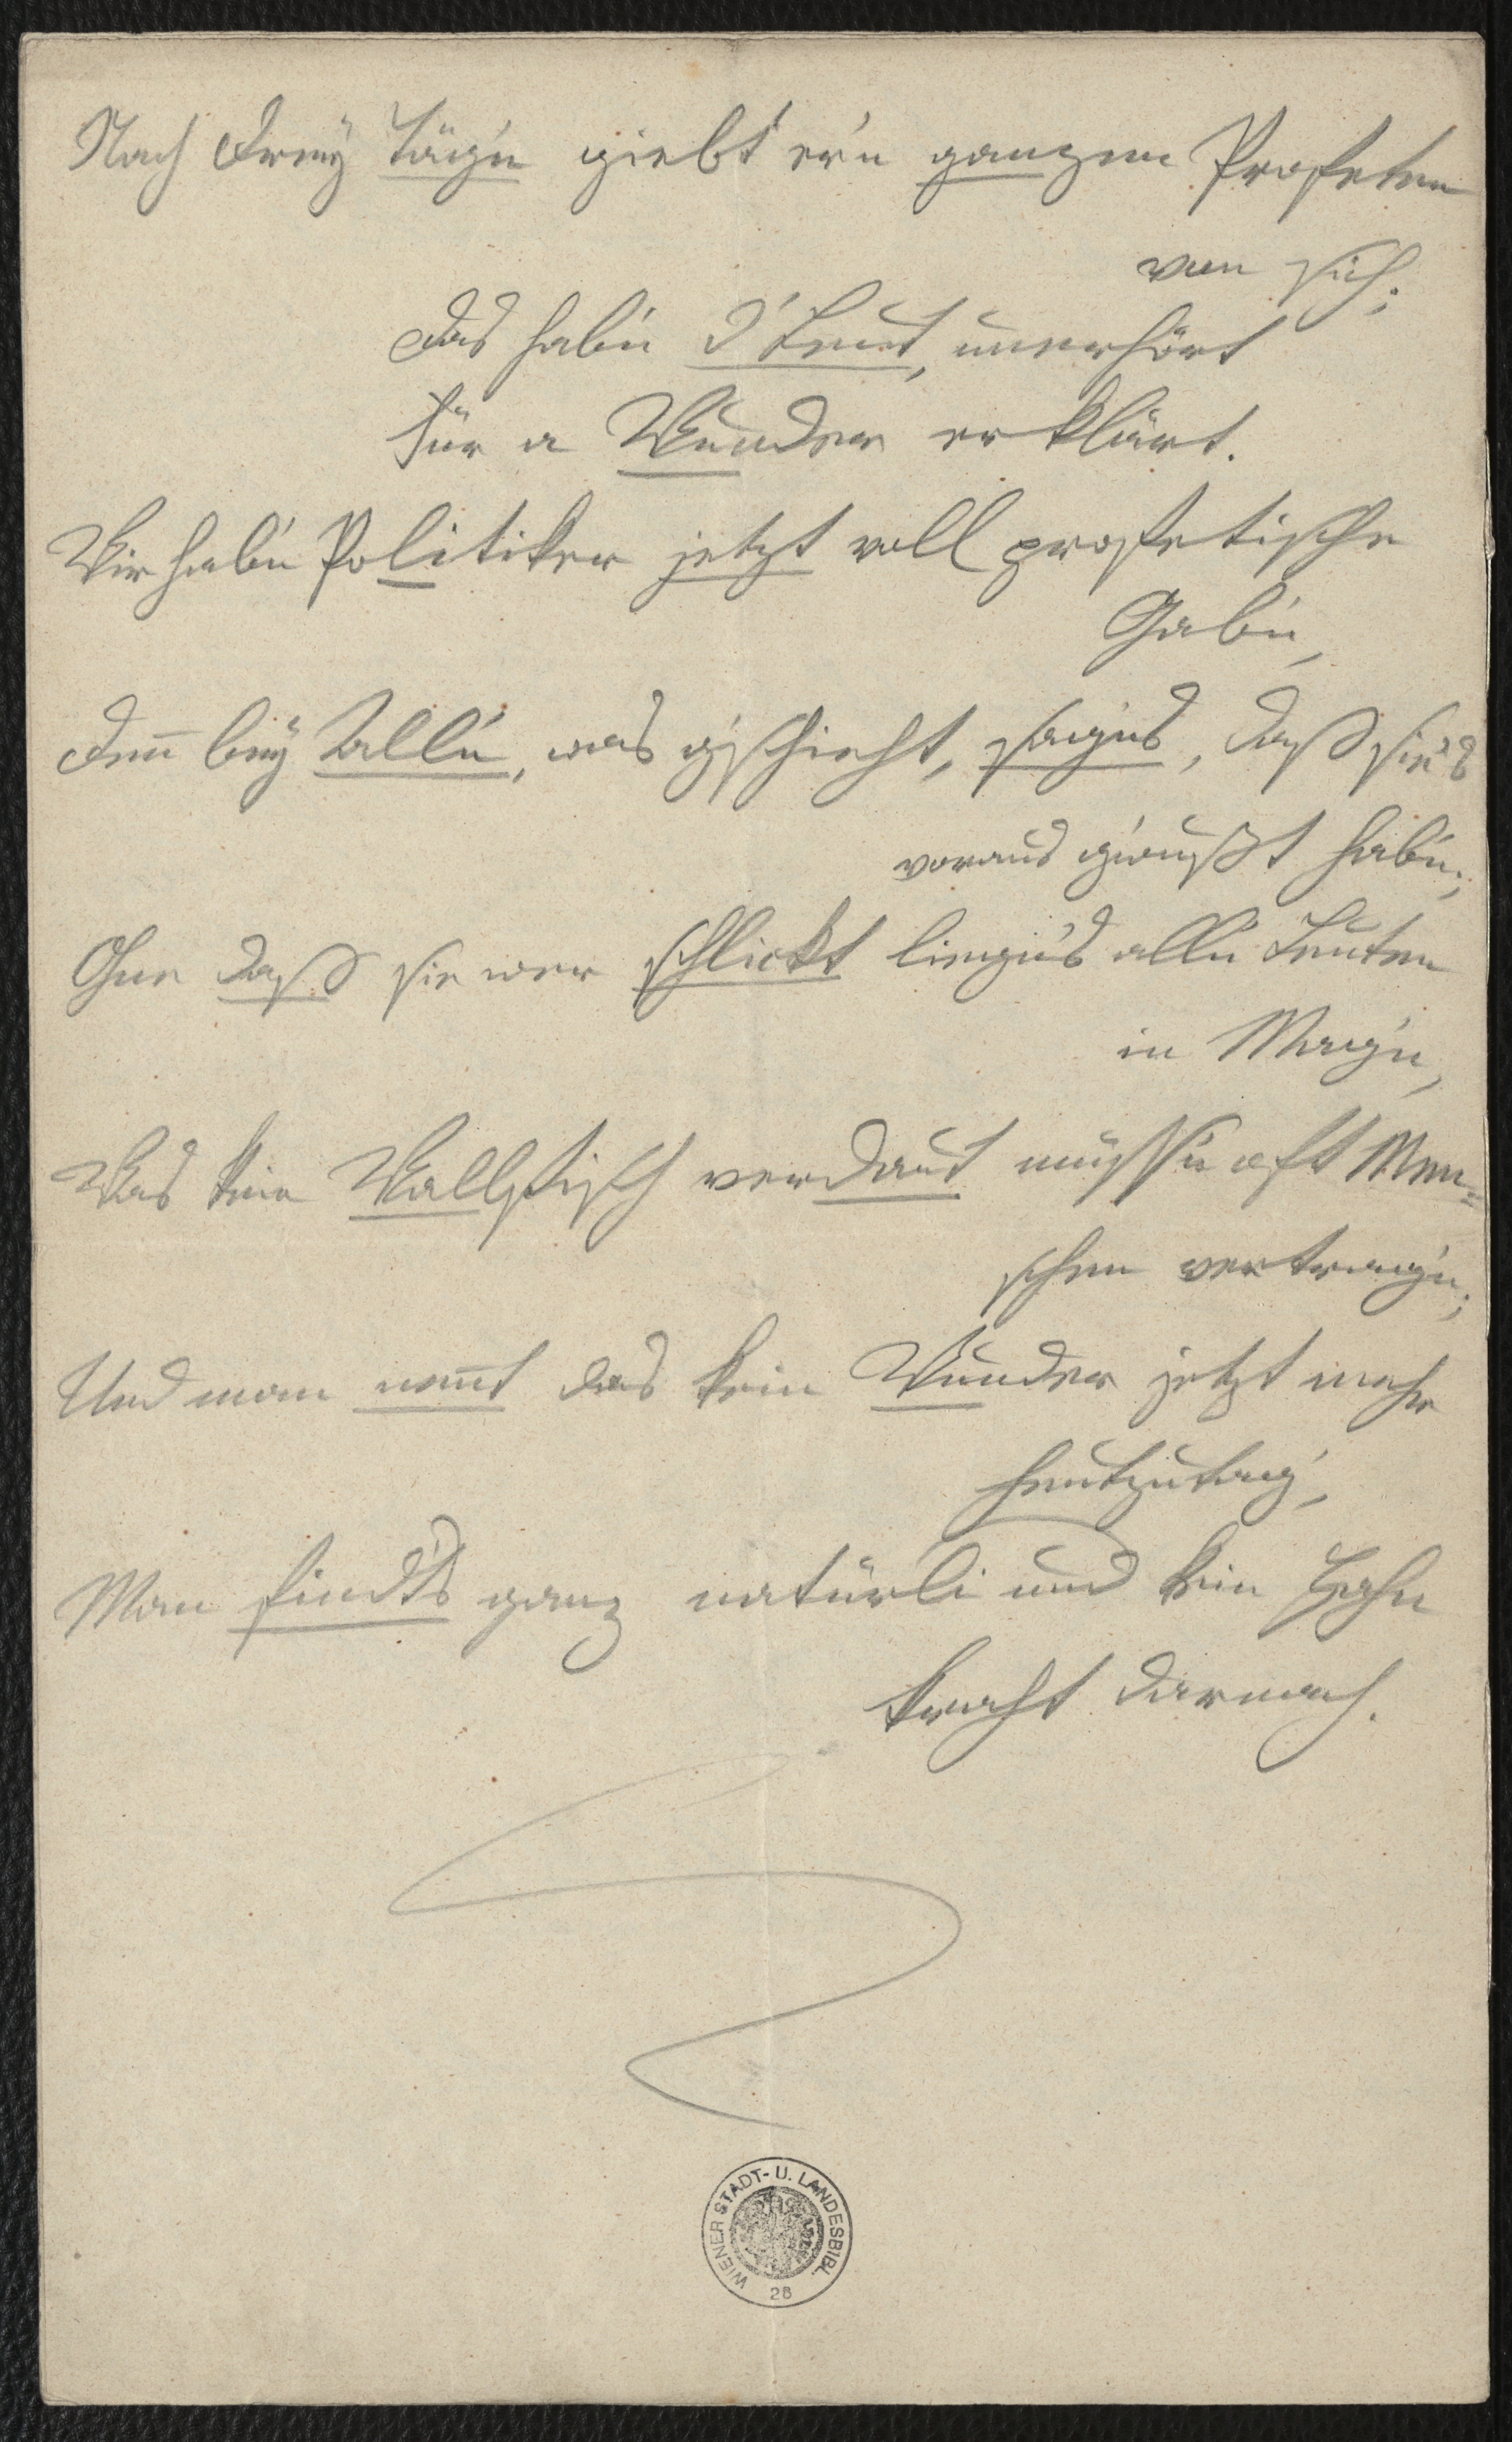 Nach drey Täg'n giebt er'n ganzen Profeten
von sich;
das hab'n d'Leut, unerhört
für a Wunder erklärt.
Wir hab'n Politiker jetzt voll profetische
Gab'n,
denn bey All'n, was g'schieht, sag'ns, daß sie's
voraus g'wußt hab'n;
Ohne daß sie wer schlickt lieg'ns all'n Leuten
in Mag'n,
Was kein Wallfisch verdaut müss'n oft Men=
schen vertrag'n;
Und man nennt das kein Wunder jetzt mehr
heutzutag',
Man find't's ganz natürli und kein Hahn
kräht darnach.
WIENER STADT- U. LANDESBIBL.
28